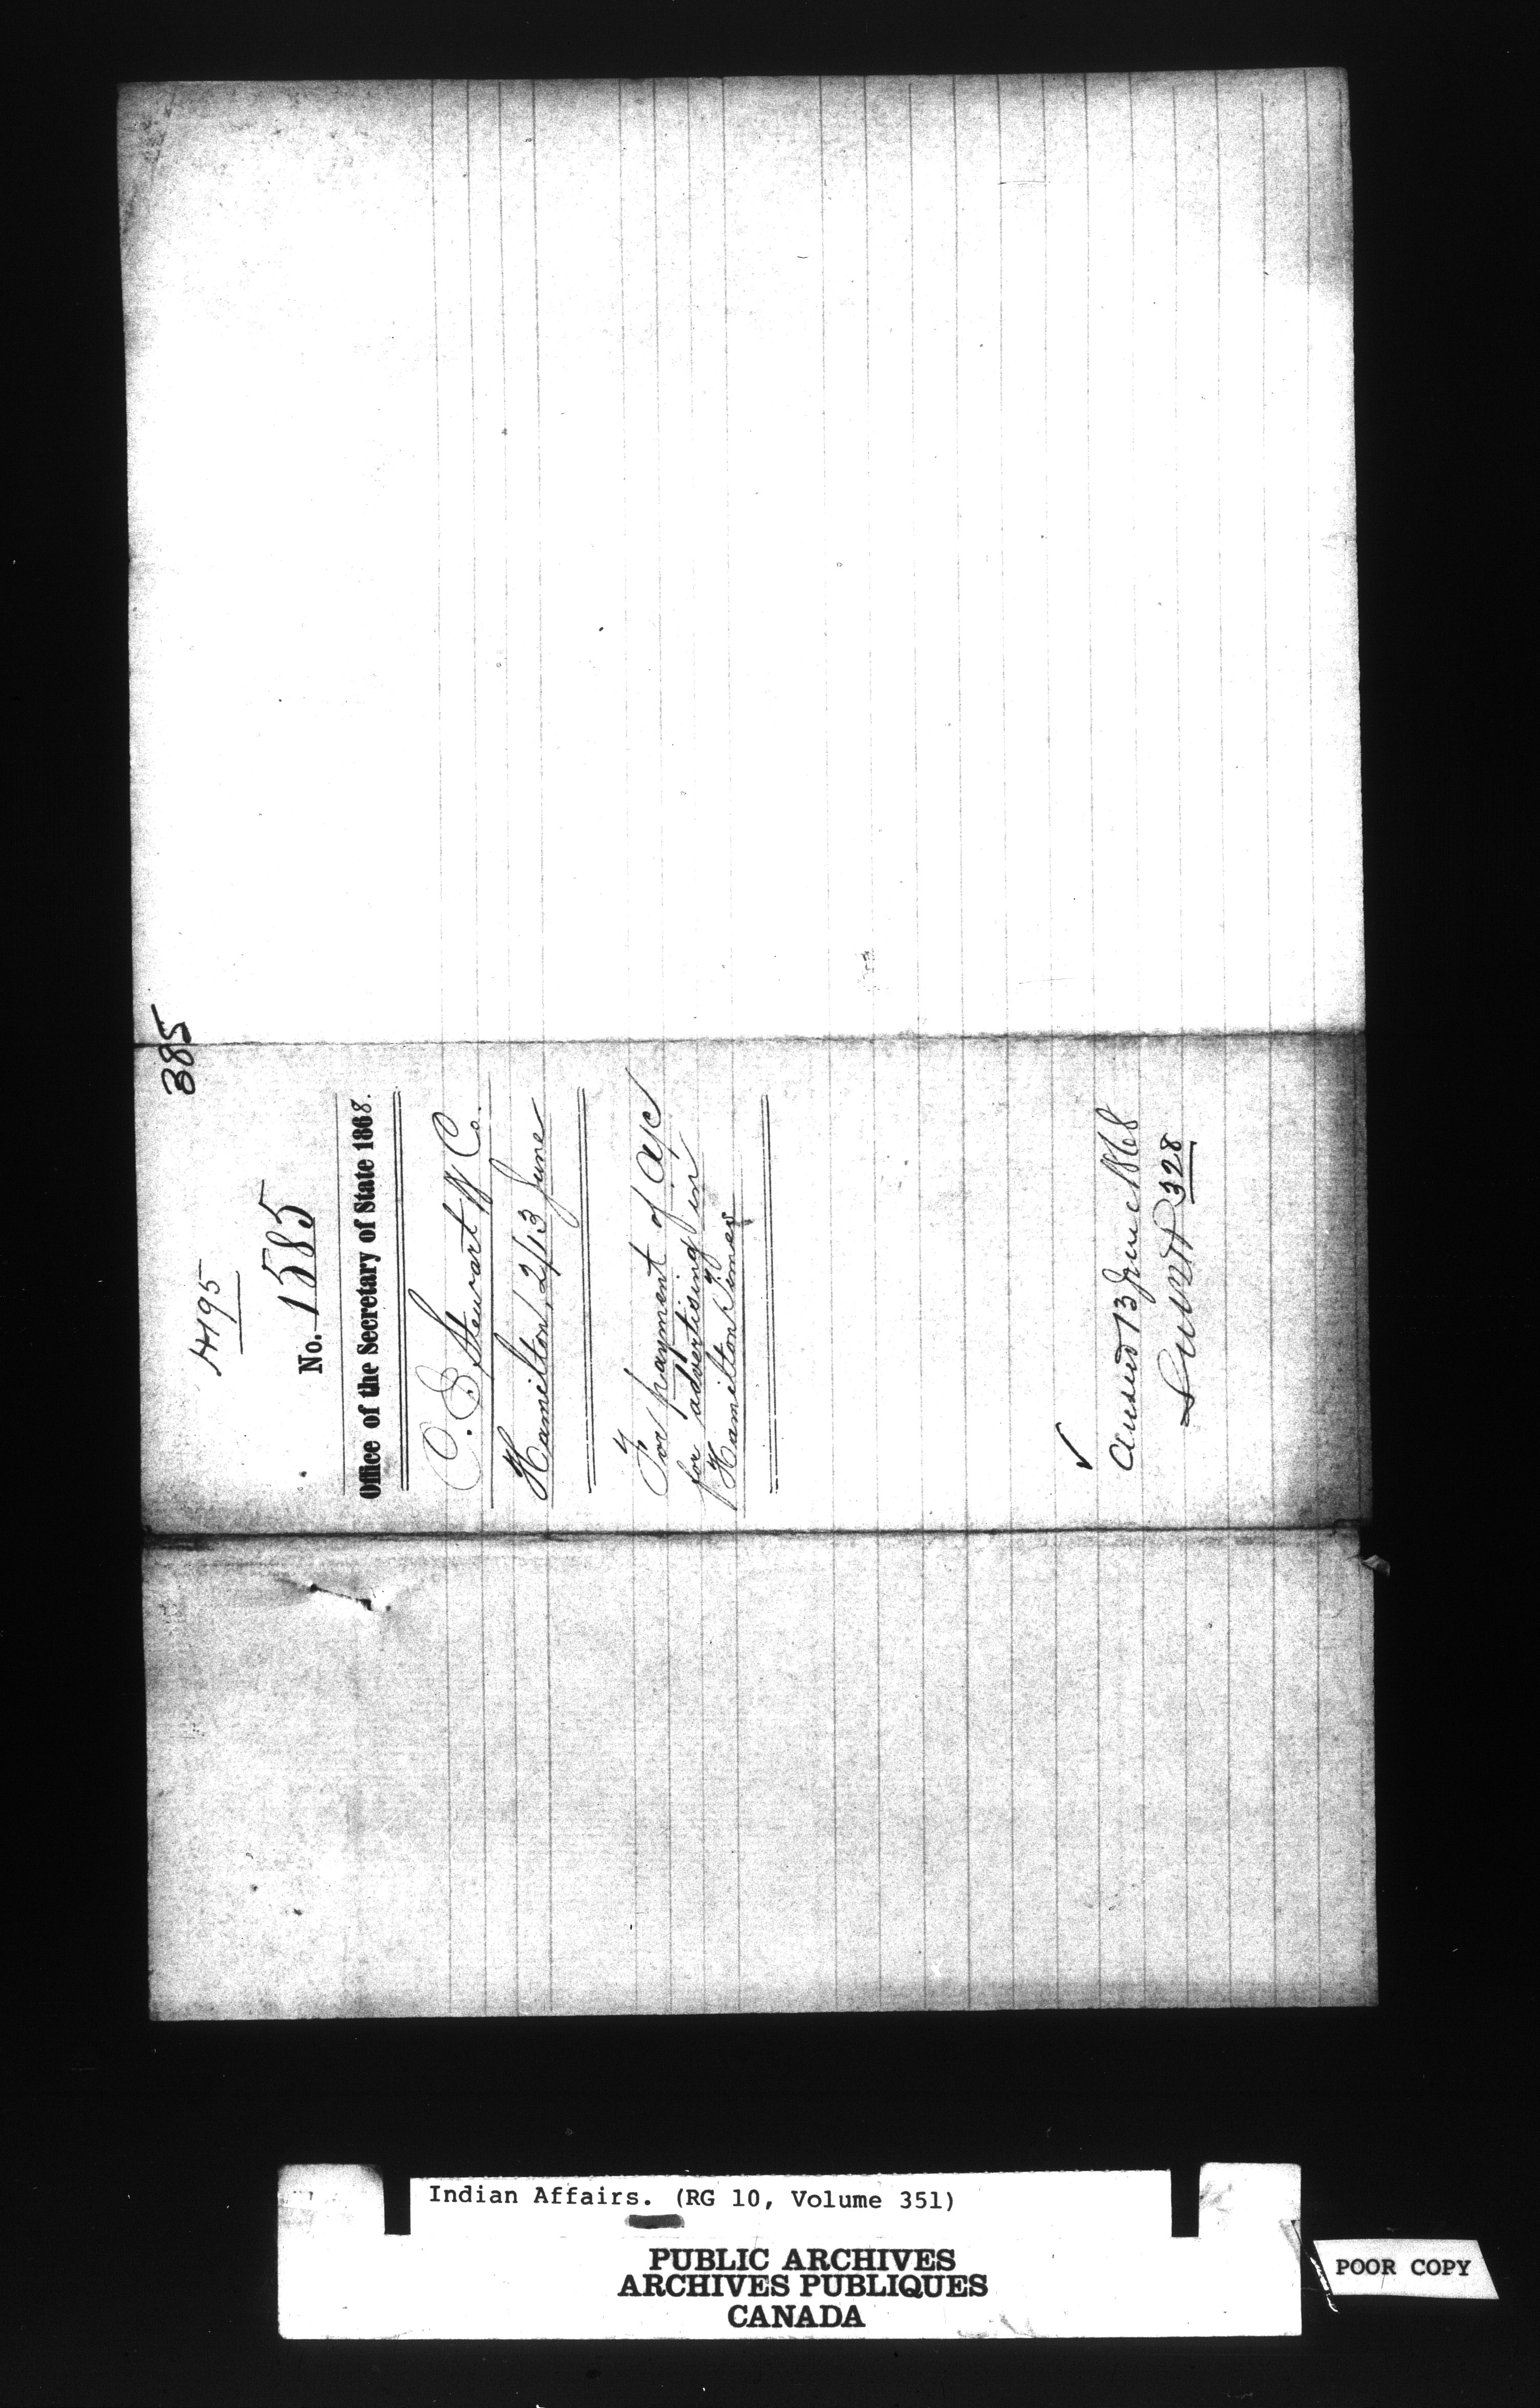 385
4195
No. 1585
Office of the Secretary of State 1868.
C. E. Stewart & Co.
Hamilton, 2/13 June
For payment of a/c
for advertising in
Hamilton Times
✓
13 June 1868
328
Indian Affairs. (RG 10, Volume 351)
PUBLIC ARCHIVES
ARCHIVES PUBLIQUES
CANADA
POOR COPY